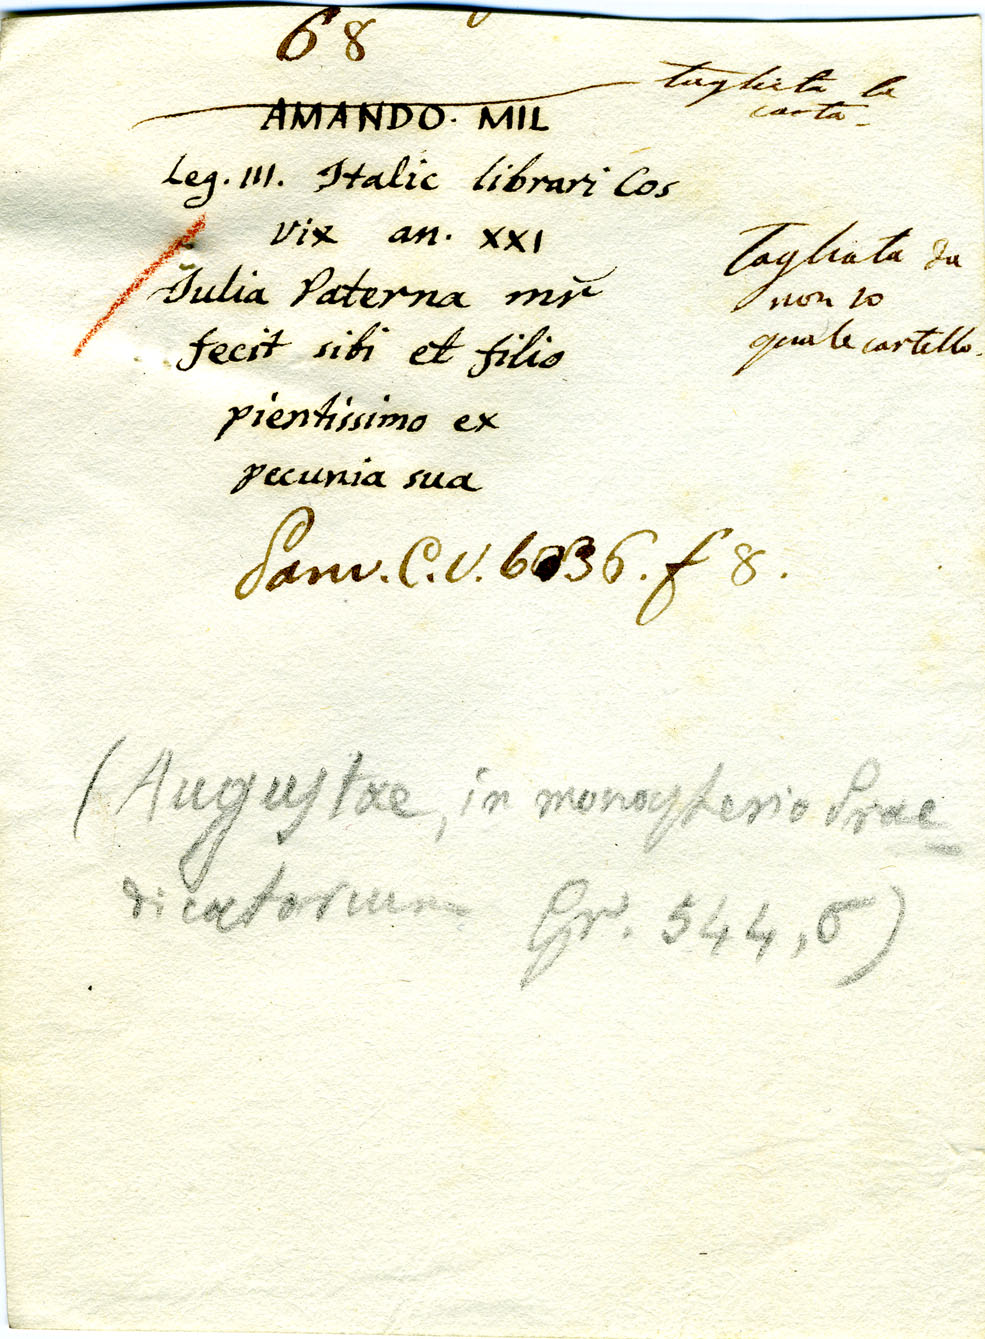 68
tagliata la
carta.
AMANDO. MIL
Leg. III. Italic librari Cos
Vix an. XXI
Iulia Paterna mr̃
fecit sibi et filio
pientissimo ex
pecunia sua
Tagliata da
non so
quale cartello.
C.V. 6036. f 8.
(Augustae, in monasterio Prae
dicatorum Gr. 544,6)